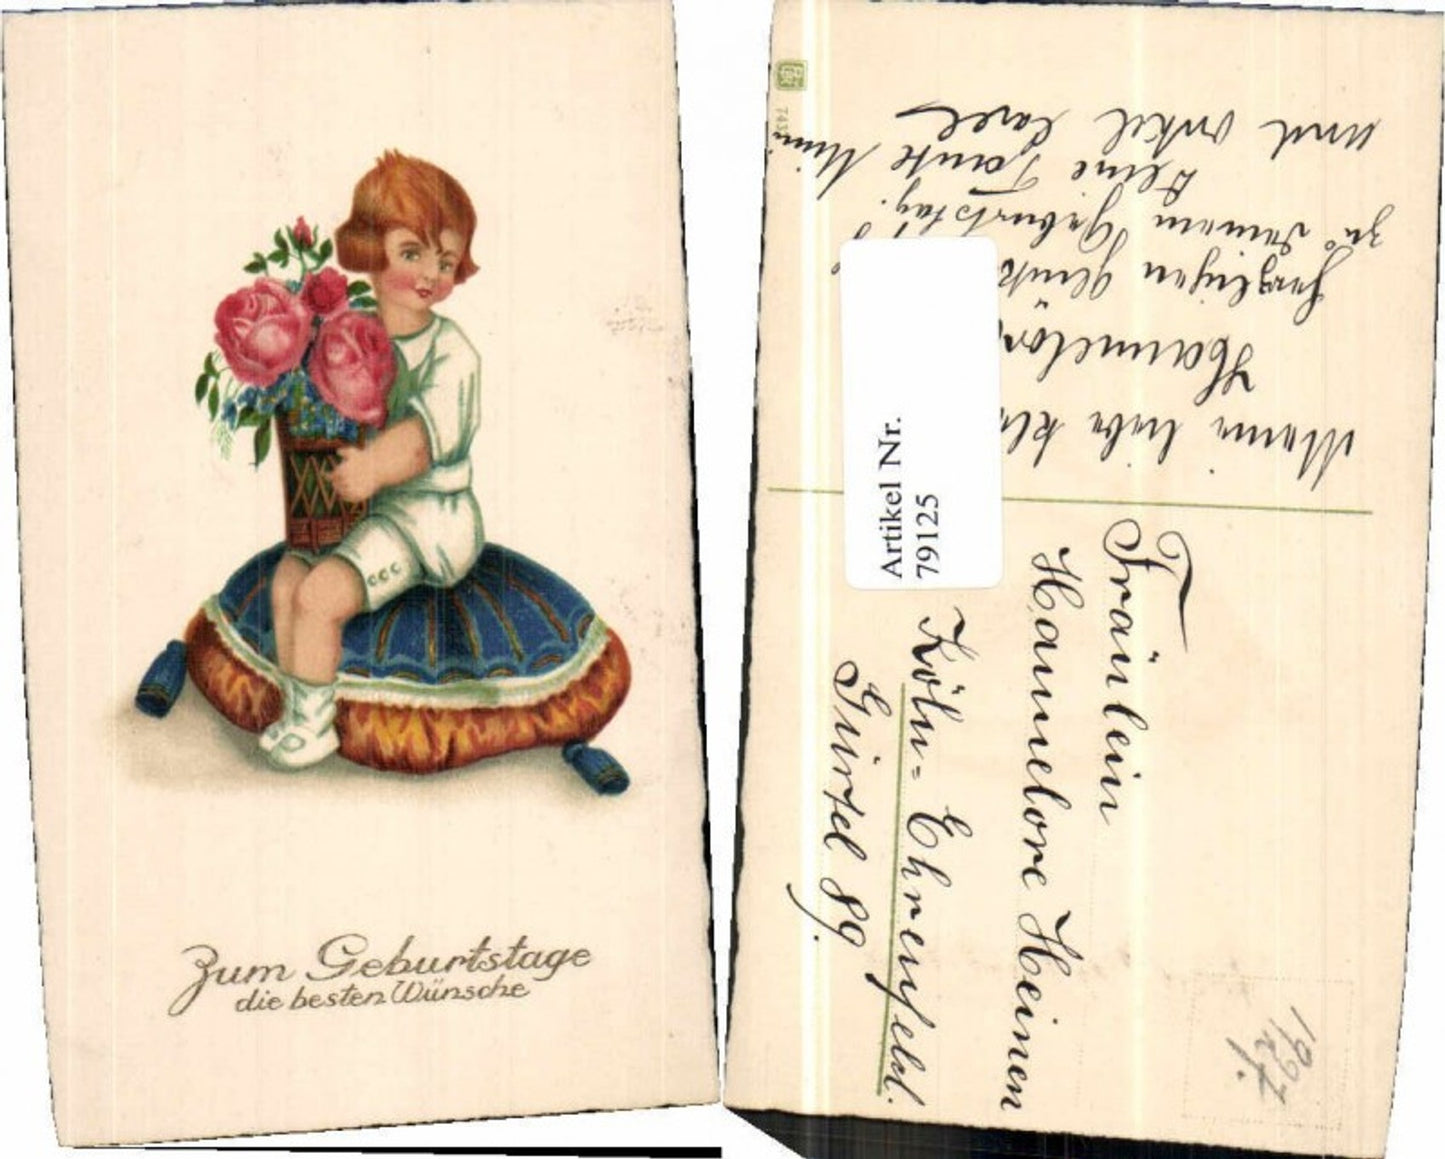 Zum Geburtstage
die besten Wünsche
Meine liebe
Hannelore
herzlichen Glück
zu Deinem Geburtstag.
Deine Tante Mimi
und Onkel Carl
743
Artikel Nr.
79125
Fräulein
Hannelore Heinen
Köln-Ehrenfeld.
Gürtel 89.